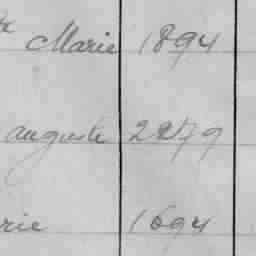 Marie 1894
auguste 2279
rie 1694